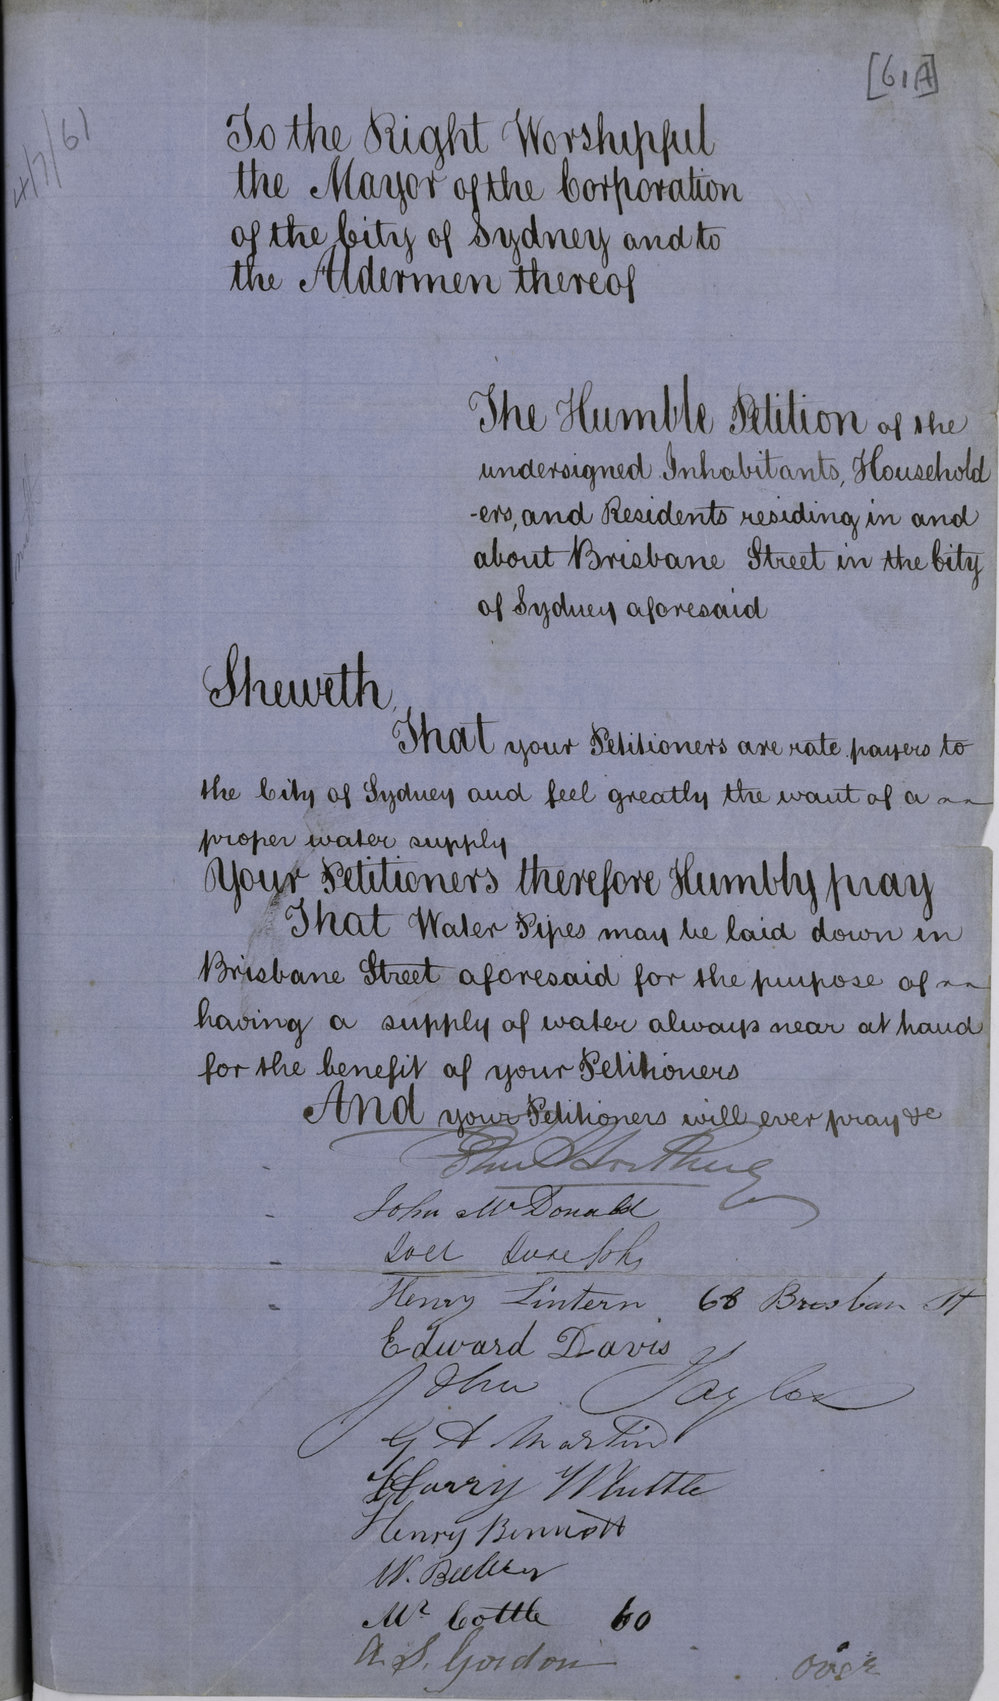 [61A]
4/7/61
To the Right Worshipful
the Mayor of the Corporation
of the City of Sydney and to
the Aldermen thereof
The Humble Petition of the
undersigned Inhabitants, Household
-ers, and Residents residing in and
about Brisbane Street in the City
of Sydney aforesaid
Sheweth,
That your Petitioners are rate payers to
the City of Sydney and feel greatly the want of a
proper water supply
Your Petitioners therefore Humbly pray
That Water Pipes may be laid down in
Brisbane Street aforesaid for the purpose of
having a supply of water always near at hand
for the benefit of your Petitioners
And your Petitioners will ever pray &c
John McDonald
Joel Josephs
Henry Lintern 68 Brisban St
Edward Davis
John Taylor
G A Martin
Harry Whittle
Henry Bennett
W.
Mr Cottle 60
A. S. Gordon
over